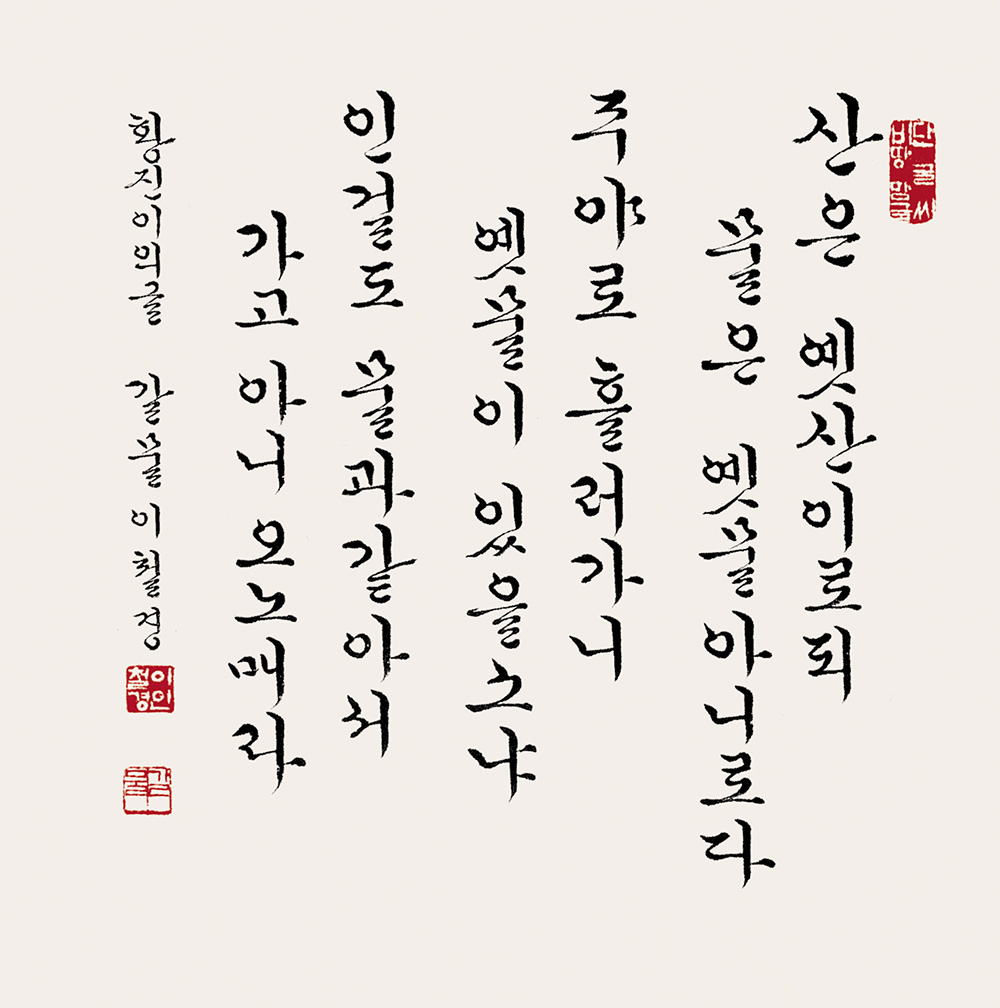 산은 옛산이로되
물은 옛물아니로다
주야로 흘러가니
옛물이 있을소냐
인걸도 물과같아서
가고 아니 오노매라
황진이의글 갈물 이철경
이인철경
갈물